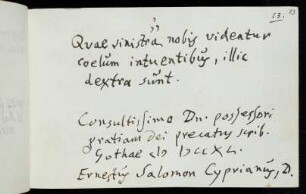 53. 53
Quae sinistra nobis videntur
coelum intuentibus, illic
dextra sunt.
Consultissimo Dn. possessori
gratiam Dei precatus scrib.
Gothae cIɔ IɔccXL.
Ernestus Salomon Cyprianus, D.